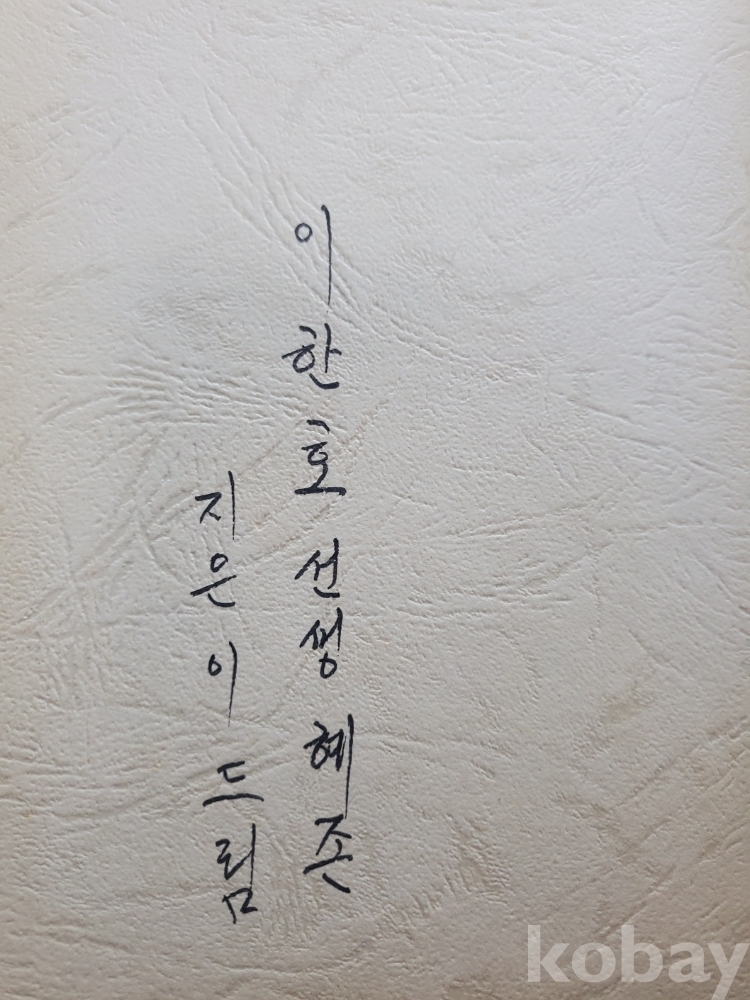 이한호 선생 혜존
지은이 드림
kobay